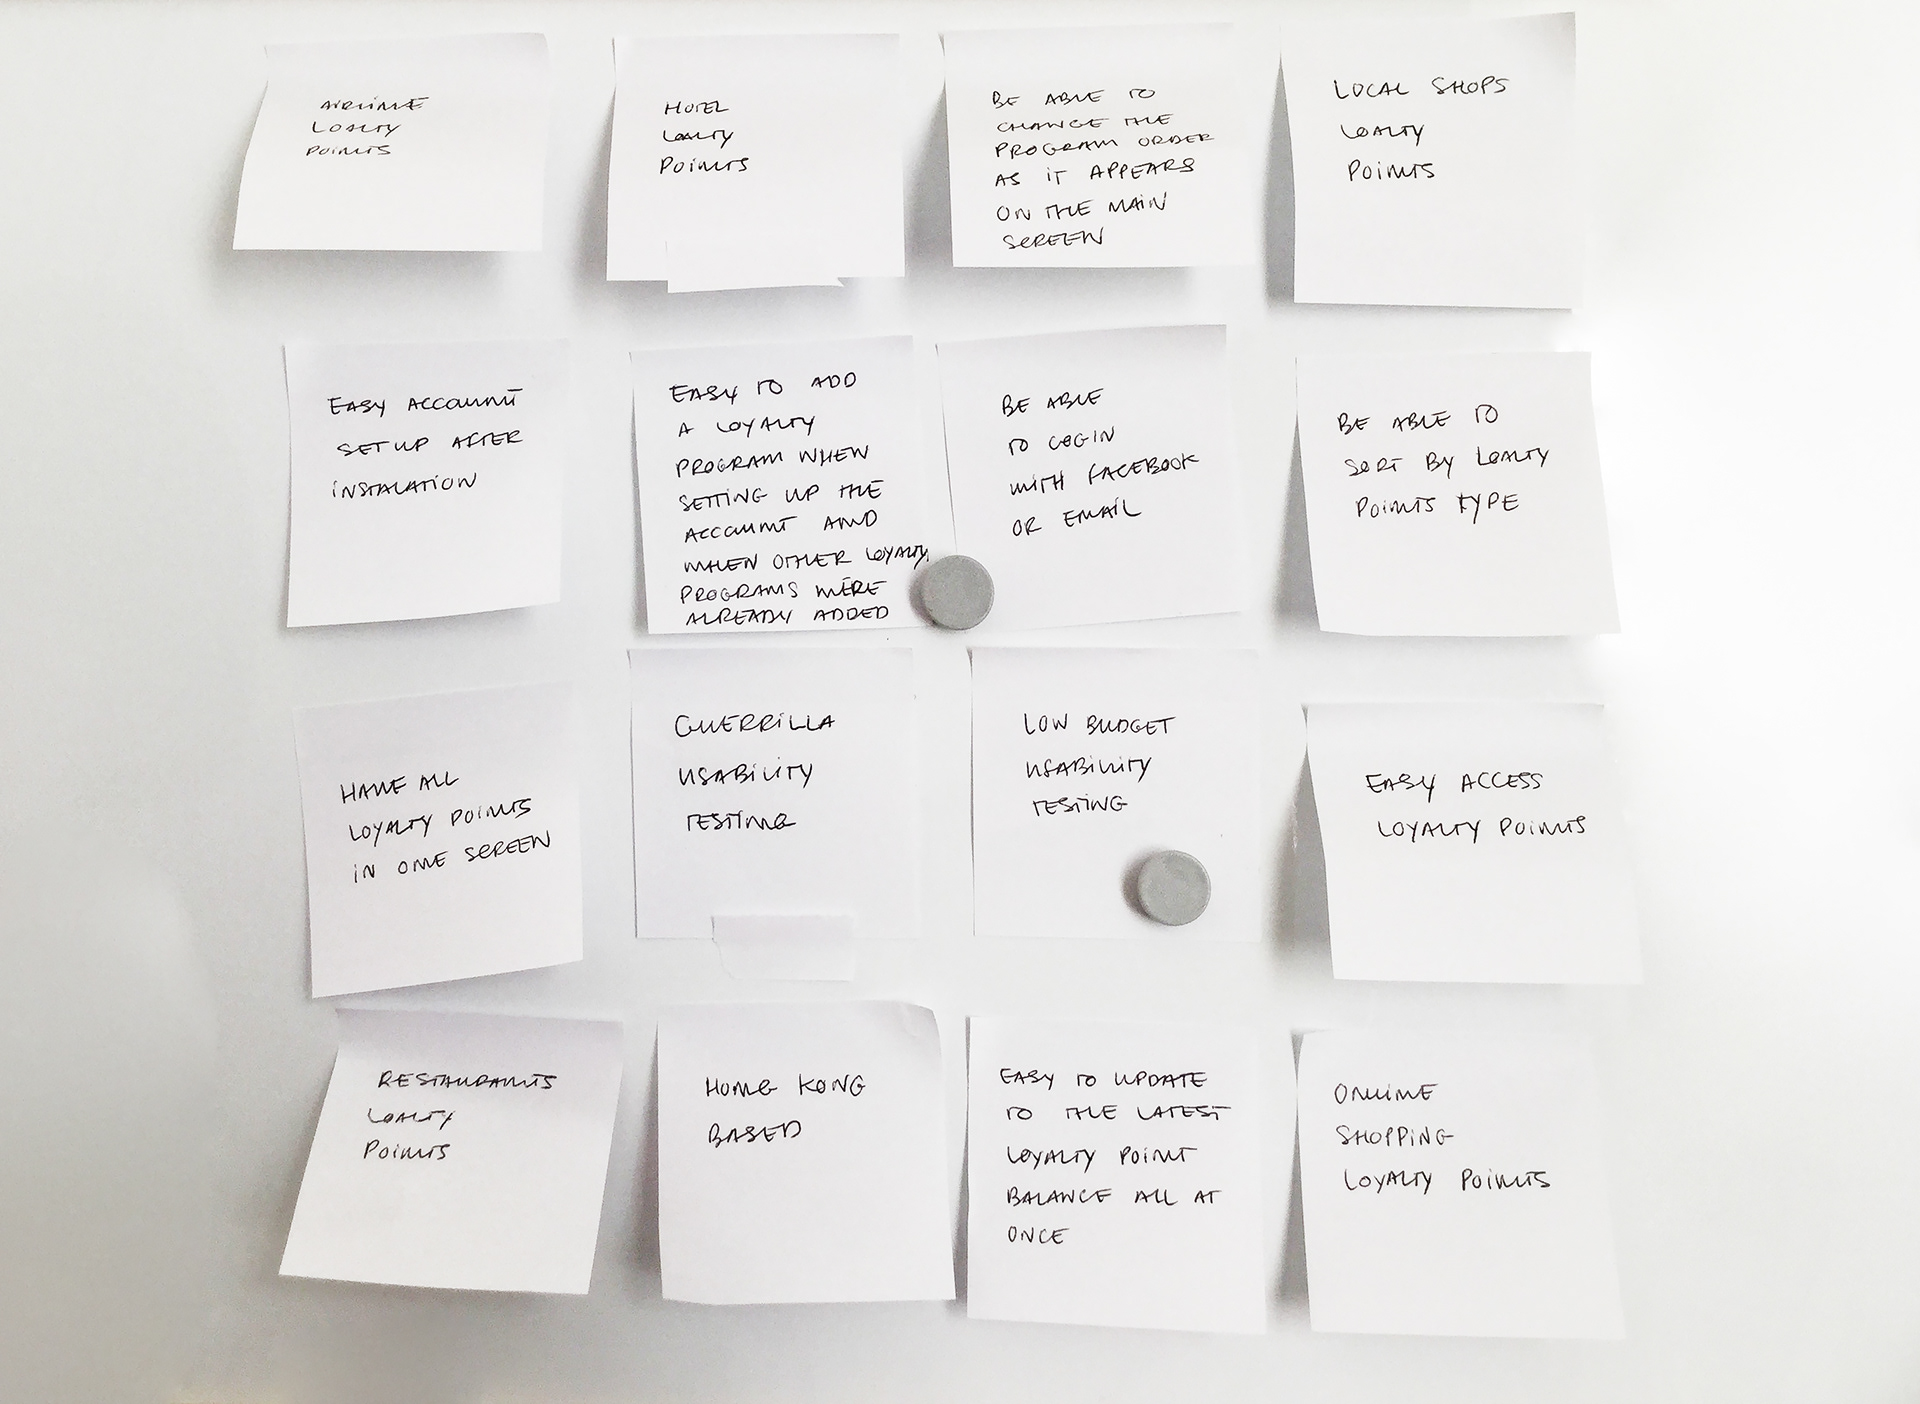 AIRLINE
LOALTY
POINTS
HOTEL
LOALTY
POINTS
BE ABLE TO
CHANGE THE
PROGRAM ORDER
AS IT APPEARS
ON THE MAIN
SCREEN
LOCAL SHOPS
LOALTY
POINTS
EASY ACCOUNT
SET UP AFTER
INSTALATION
EASY TO ADD
A LOYALTY
PROGRAM WHEN
SETTING UP THE
ACCOUNT AND
WHEN OTHER LOYALTY
PROGRAMS WERE
ALREADY ADDED
BE ABLE
TO LOGIN
WITH FACEBOOK
OR EMAIL
BE ABLE TO
SORT BY LOALTY
POINTS TYPE
HAVE ALL
LOYALTY POINTS
IN ONE SCREEN
GUERRILLA
USABILITY
TESTING
LOW BUDGET
USABILITY
TESTING
EASY ACCESS
LOYALTY POINTS
RESTAURANTS
LOALTY
POINTS
HONG KONG
BASED
EASY TO UPDATE
TO THE LATEST
LOYALTY POINT
BALANCE ALL AT
ONCE
ONLINE
SHOPPING
LOYALTY POINTS